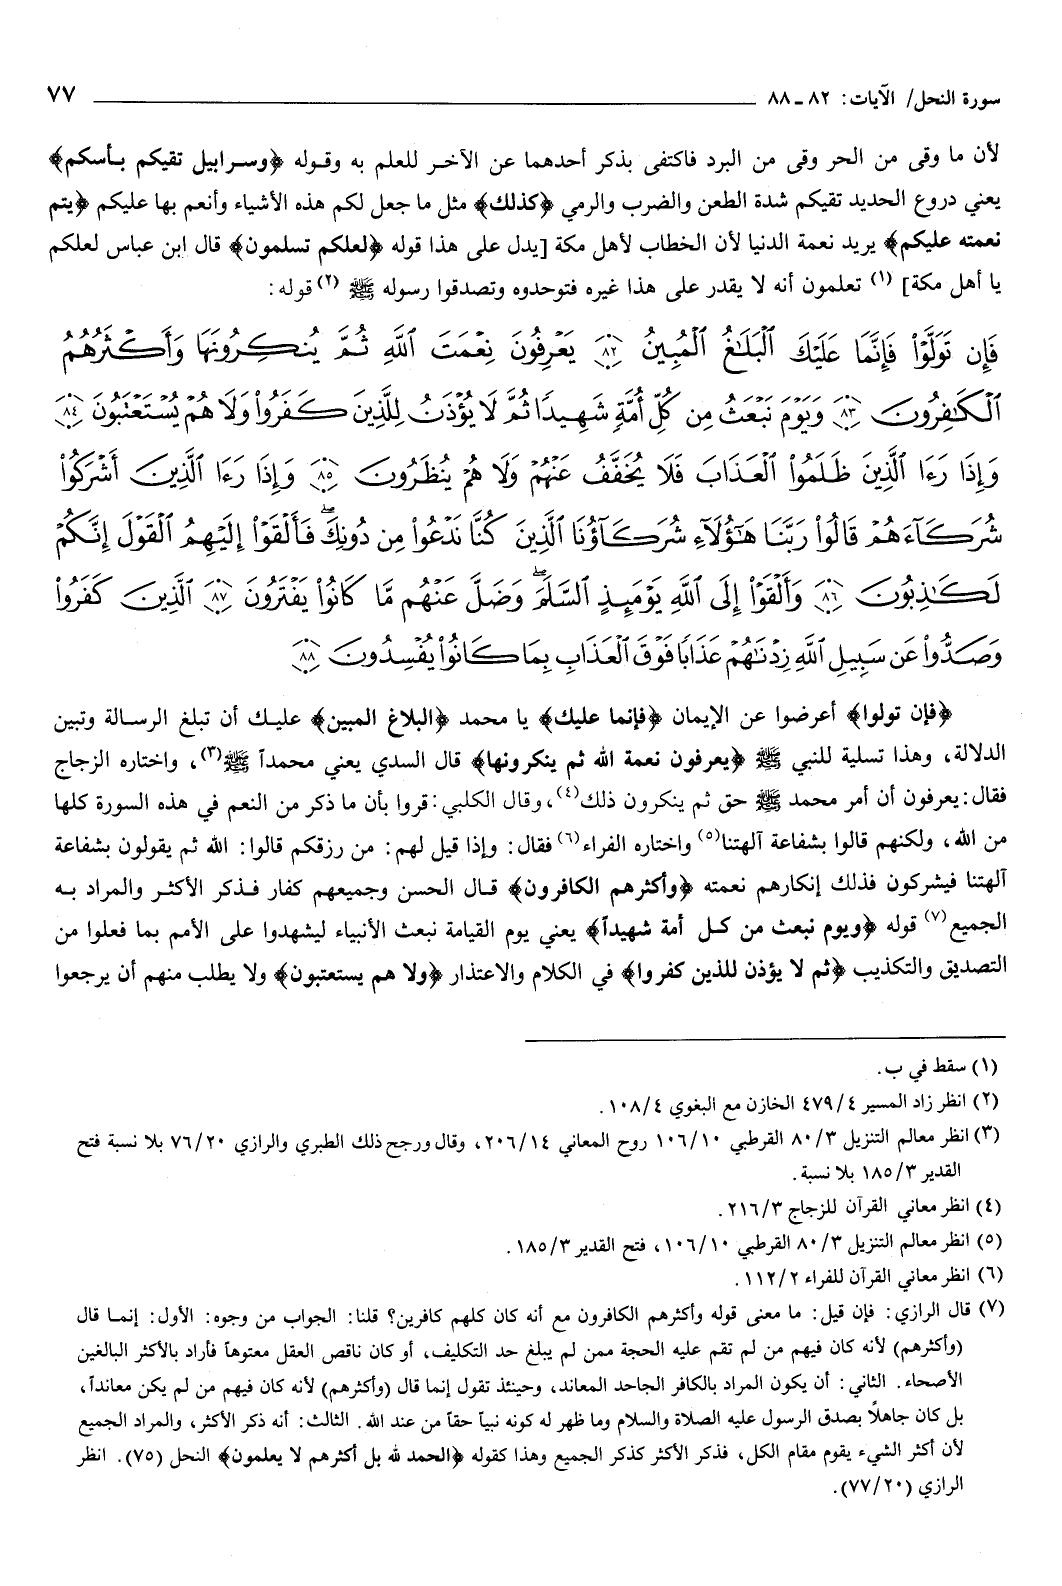 سورة النحل/ الآيات: ٨٢ ـ ٨٨ ٧٧
لأن ما وقى من الحر وقى من البرد فاكتفى بذكر أحدهما عن الآخر للعلم به وقوله ﴿وسرابيل تقيكم بأسكم﴾
يعني دروع الحديد تقيكم شدة الطعن والضرب والرمي ﴿كذلك﴾ مثل ما جعل لكم هذه الأشياء وأنعم بها عليكم ﴿يتم
نعمته عليكم﴾ يريد نعمة الدنيا لأن الخطاب لأهل مكة [يدل على هذا قوله ﴿لعلكم تسلمون﴾ قال ابن عباس لعلكم
يا أهل مكة] (١) تعلمون أنه لا يقدر على هذا غيره فتوحدوه وتصدقوا رسوله ﷺ (٢) قوله:
فَإِن تَوَلَّوْا۟ فَإِنَّمَا عَلَيْكَ ٱلْبَلَٰغُ ٱلْمُبِينُ ۝٨٢ يَعْرِفُونَ نِعْمَتَ ٱللَّهِ ثُمَّ يُنكِرُونَهَا وَأَكْثَرُهُمُ
ٱلْكَٰفِرُونَ ۝٨٣ وَيَوْمَ نَبْعَثُ مِن كُلِّ أُمَّةٍ شَهِيدًا ثُمَّ لَا يُؤْذَنُ لِلَّذِينَ كَفَرُوا۟ وَلَا هُمْ يُسْتَعْتَبُونَ ۝٨٤
وَإِذَا رَءَا ٱلَّذِينَ ظَلَمُوا۟ ٱلْعَذَابَ فَلَا يُخَفَّفُ عَنْهُمْ وَلَا هُمْ يُنظَرُونَ ۝٨٥ وَإِذَا رَءَا ٱلَّذِينَ أَشْرَكُوا۟
شُرَكَآءَهُمْ قَالُوا۟ رَبَّنَا هَٰٓؤُلَآءِ شُرَكَآؤُنَا ٱلَّذِينَ كُنَّا نَدْعُوا۟ مِن دُونِكَ ۖ فَأَلْقَوْا۟ إِلَيْهِمُ ٱلْقَوْلَ إِنَّكُمْ
لَكَٰذِبُونَ ۝٨٦ وَأَلْقَوْا۟ إِلَى ٱللَّهِ يَوْمَئِذٍ ٱلسَّلَمَ ۖ وَضَلَّ عَنْهُم مَّا كَانُوا۟ يَفْتَرُونَ ۝٨٧ ٱلَّذِينَ كَفَرُوا۟
وَصَدُّوا۟ عَن سَبِيلِ ٱللَّهِ زِدْنَٰهُمْ عَذَابًا فَوْقَ ٱلْعَذَابِ بِمَا كَانُوا۟ يُفْسِدُونَ ۝٨٨
﴿فإن تولوا﴾ أعرضوا عن الإيمان ﴿فإنما عليك﴾ يا محمد ﴿البلاغ المبين﴾ عليك أن تبلغ الرسالة وتبين
الدلالة، وهذا تسلية للنبي ﷺ ﴿يعرفون نعمة الله ثم ينكرونها﴾ قال السدي يعني محمداً ﷺ(٣)، واختاره الزجاج
فقال: يعرفون أن أمر محمد ﷺ حق ثم ينكرون ذلك(٤)، وقال الكلبي: قروا بأن ما ذكر من النعم في هذه السورة كلها
من الله، ولكنهم قالوا بشفاعة آلهتنا(٥) واختاره الفراء(٦) فقال: وإذا قيل لهم: من رزقكم قالوا: الله ثم يقولون بشفاعة
آلهتنا فيشركون فذلك إنكارهم نعمته ﴿وأكثرهم الكافرون﴾ قال الحسن وجميعهم كفار فذكر الأكثر والمراد به
الجميع(٧) قوله ﴿ويوم نبعث من كل أمة شهيداً﴾ يعني يوم القيامة نبعث الأنبياء ليشهدوا على الأمم بما فعلوا من
التصديق والتكذيب ﴿ثم لا يؤذن للذين كفروا﴾ في الكلام والاعتذار ﴿ولا هم يستعتبون﴾ ولا يطلب منهم أن يرجعوا
(١) سقط في ب.
(٢) انظر زاد المسير ٤٧٩/٤ الخازن مع البغوي ١٠٨/٤.
(٣) انظر معالم التنزيل ٨٠/٣ القرطبي ١٠٦/١٠ روح المعاني ٢٠٦/١٤، وقال ورجح ذلك الطبري والرازي ٧٦/٢٠ بلا نسبة فتح
القدير ١٨٥/٣ بلا نسبة.
(٤) انظر معاني القرآن للزجاج ٢١٦/٣.
(٥) انظر معالم التنزيل ٨٠/٣ القرطبي ١٠٦/١٠، فتح القدير ١٨٥/٣.
(٦) انظر معاني القرآن للفراء ١١٢/٢.
(٧) قال الرازي: فإن قيل: ما معنى قوله وأكثرهم الكافرون مع أنه كان كلهم كافرين؟ قلنا: الجواب من وجوه: الأول: إنما قال
(وأكثرهم) لأنه كان فيهم من لم تقم عليه الحجة ممن لم يبلغ حد التكليف، أو كان ناقص العقل معتوهاً فأراد بالأكثر البالغين
الأصحاء. الثاني: أن يكون المراد بالكافر الجاحد المعاند، وحينئذ تقول إنما قال (وأكثرهم) لأنه كان فيهم من لم يكن معانداً،
بل كان جاهلاً بصدق الرسول عليه الصلاة والسلام وما ظهر له كونه نبياً حقاً من عند الله. الثالث: أنه ذكر الأكثر، والمراد الجميع
لأن أكثر الشيء يقوم مقام الكل، فذكر الأكثر كذكر الجميع وهذا كقوله ﴿الحمد لله بل أكثرهم لا يعلمون﴾ النحل (٧٥). انظر
الرازي (٧٧/٢٠).